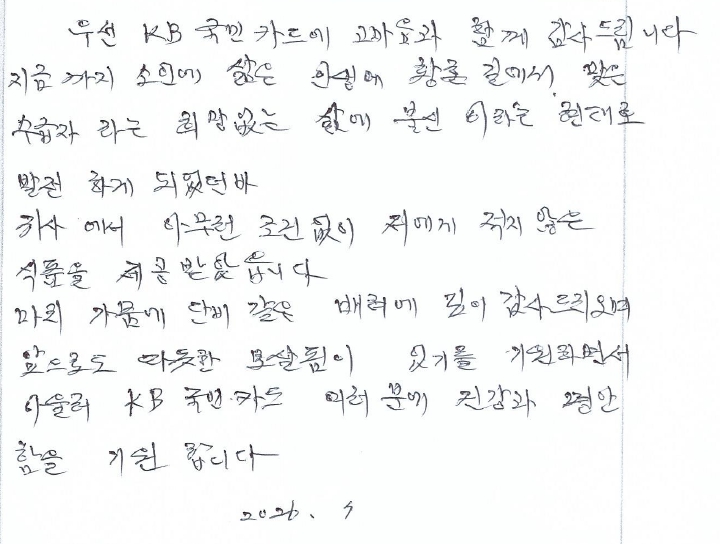 우선 KB 국민 카드에 고마음과 함께 감사드립니다
지금 까지 소인에 삶은 인생에 황혼 길에서 맞은
수급자 라는 희망없는 삶에 불신 이라는 현태로
발전 하게 되었던바
귀사 에서 아무런 조건 없이 저에게 적지 않은
식품을 제공 받았습니다
마치 가뭄에 단비 같은 배려에 깊이 감사드리오며
앞으로도 따듯한 보살핌이 있기를 기원하면서
아울러 KB 국민 카드 여러 분에 건강과 평안
함을 기원 합니다
2026. 4